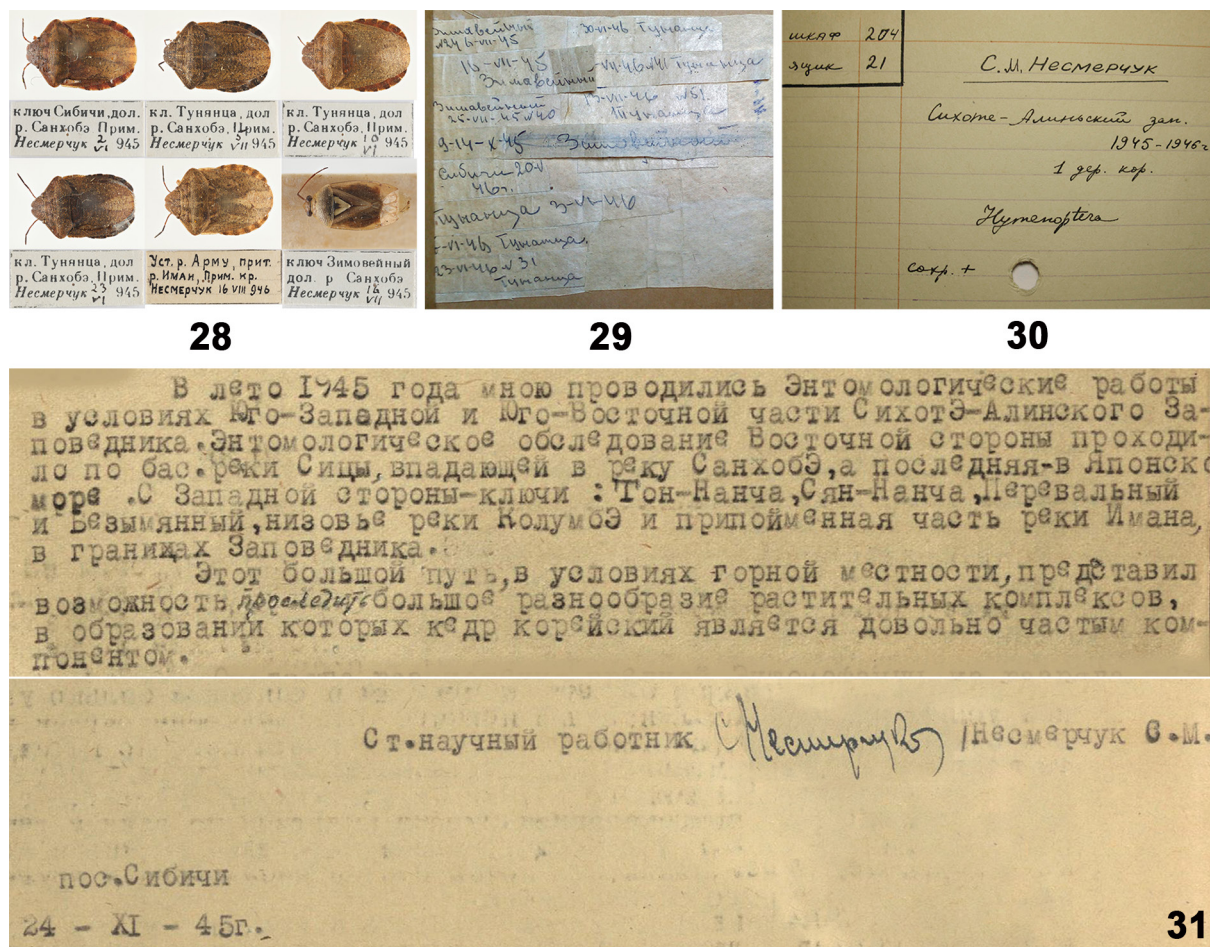 ключ Сибичи, дол.
р. Санхобэ Прим.
Несмерчук 2 VI 945
кл. Тунянца, дол
р. Санхобэ, Прим.
Несмерчук 3 VII 945
кл. Тунянца, дол
р. Санхобэ, Прим.
Несмерчук 10 VI 945
кл. Тунянца, дол
р. Санхобэ, Прим.
Несмерчук 23 VI 945
Уст. р. Арму, прит.
р. Иман, Прим. кр.
Несмерчук 16 VIII 946
ключ Зимовейный
дол. р Санхобэ
Несмерчук VII 945
28
16-VII-45
9-14-X-45
Сибичи 20-V
46г.
Тунанца 3-VI-46
Тунанца
29
шкаф 204
ящик 21
С.М. Несмерчук
Сихоте-Алиньский зап.
1945-1946г
1 дер. кор.
Hymenoptera
сохр. +
30
В лето 1945 года мною проводились Энтомологические работы
в условиях Юго-Западной и Юго-Восточной части СихотЭ-Алинского За-
поведника.Энтомологическое обследование Восточной стороны проходи-
ло по бас.реки Сицы,впадающей в реку СанхобЭ,а последняя-в Японско
море .С Западной стороны-ключи : Тон-Нанча,Сян-Нанча,Перевальный
и Безымянный,низовье реки КолумбЭ и припойменная часть реки Имана,
в границах Заповедника.
Этот большой путь,в условиях горной местности,представил
возможность проследить большое разнообразие растительных комплексов,
в образовании которых кедр корейский является довольно частым ком-
понентом.
Ст.научный работник С Несмерчук /Несмерчук С.М.
пос.Сибичи
24 - XI - 45г.
31